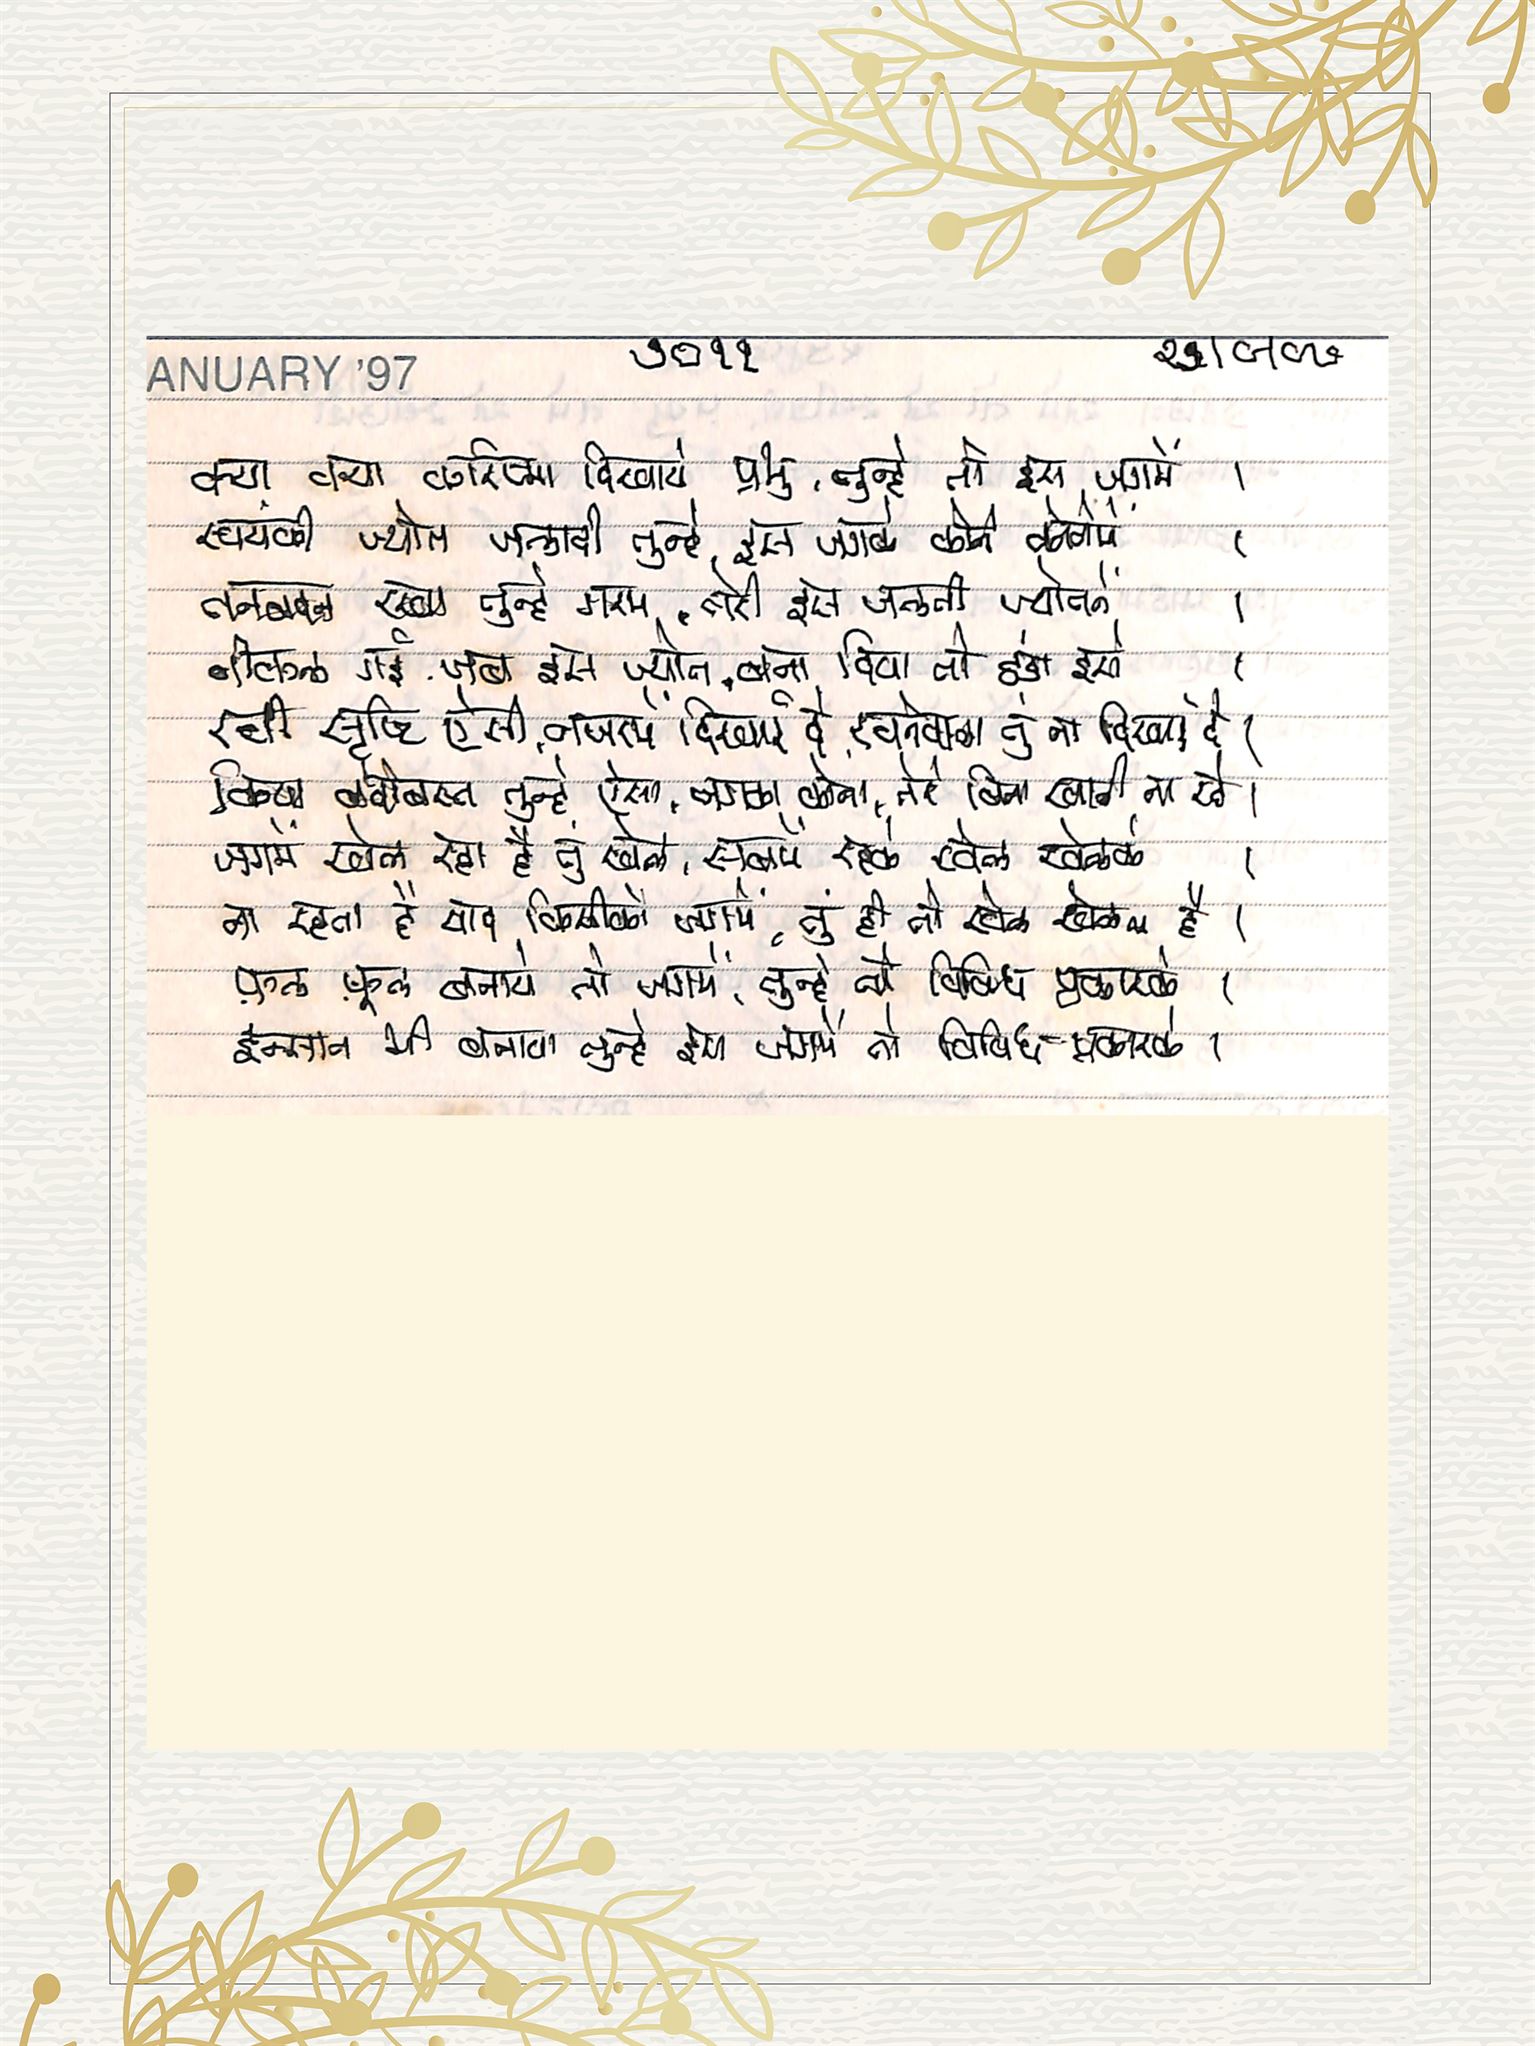 ANUARY '97
७०११
क्या क्या करिश्मा दिखाये प्रभु, तुन्हे तो इस जगमें ।
स्वयंकी ज्योत जलादी तुन्हे, इस जगके कोने कोनेमें ।
तनबदन रखा तुन्हे गरम, तेरी इस जलती ज्योतने ।
नीकल गई जब इस ज्योत, बना दिया तो ठंडा इसे ।
रची सृष्टि ऐसी, नजरमें दिखाई दे, रचनेवाला तुं ना दिखाई दे ।
किया बंदोबस्त तुन्हे ऐसा, जगका कोना, तेरे बिना खाली ना रहे ।
जगमें खेल रहा है तुं खेल, सबमें रहके खेल खेलके ।
ना रहता है याद किसीको जगमें, तुं ही तो खेल खेलता है ।
फ़ल फ़ूल बनाये तो जगमें, तुन्हे तो विविध प्रकारके ।
इन्सान भी बनाया तुन्हे इस जगमें तो विविध प्रकारके ।